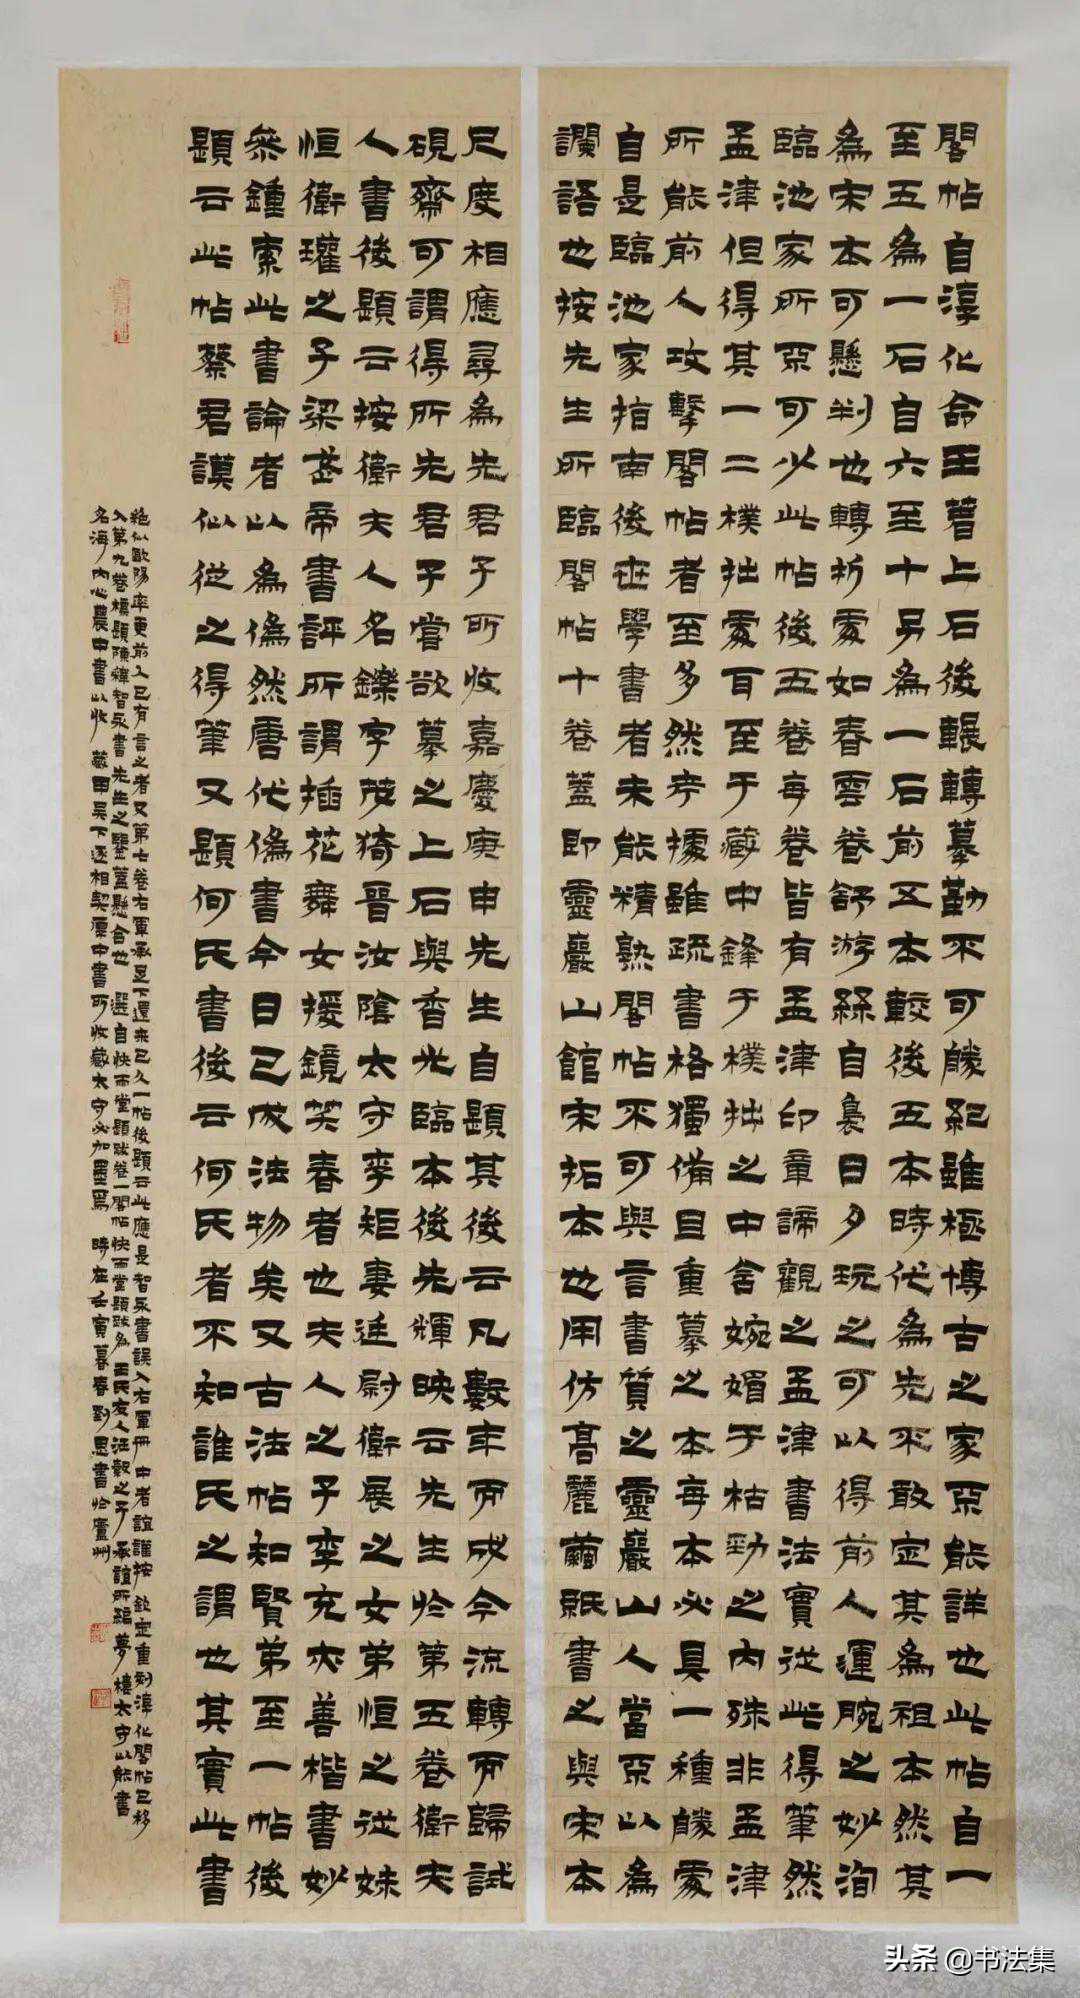 閣帖自淳化命王著上石後輾轉摹勒不可勝紀雖極博古之家亦能詳也此帖自一
至五為一石自六至十另為一石前五本較後五本時代為先不敢定其為祖本然其
為宋本可懸判也轉折處如春雲卷舒游絲自裊日夕玩之可以得前人運腕之妙洵
臨池家所亦可少此帖後五卷每卷皆有孟津印章諦觀之孟津書法實從此得筆然
孟津但得其一二樸拙處耳至于藏中鋒于樸拙之中含婉媚于枯勁之內殊非孟津
所能前人攻擊閣帖者至多然考據雖疏書格獨備且重摹之本每本必具一種勝處
自是臨池家指南後世學書者未能精熟閣帖不可與言書質之靈巖山人當亦以為
讕語也按先生所臨閣帖十卷蓋即靈巖山館宋拓本也用仿高麗繭紙書之與宋本
尺度相應尋為先君子所收嘉慶庚申先生自題其後云凡數年而成今流轉而歸試
硯齋可謂得所先君子嘗欲摹之上石與香光臨本後先輝映云先生於第五卷衛夫
人書後題云按衛夫人名鑠字茂猗晉汝陰太守李矩妻廷尉衛展之女弟恒之從妹
恒衛瓘之子梁武帝書評所謂插花舞女援鏡笑春者也夫人之子李充亦善楷書妙
參鍾索此書論者以為偽然唐代偽書今日已成法物矣又古法帖知賢弟至一帖後
題云此帖蔡君謨似從之得筆又題何氏書後云何氏者不知誰氏之謂也其實此書
絕似歐陽率更前人已有言之者又第七卷右軍承足下還來已久一帖後題云此應是智永書誤入右軍冊中者誼謹按欽定重刻淳化閣帖已移
入第九卷標題陳釋智永書先生之鑒蓋懸合也 選自快雨堂題跋卷一閣帖快雨堂題跋為王氏友人汪穀之子承誼所編夢樓太守以能書
名海內心農中書以收藏甲吳下遂相契厚中書所收藏太守必加墨焉 時在壬寅暮春劉恩書於廬州
头条 @书法集